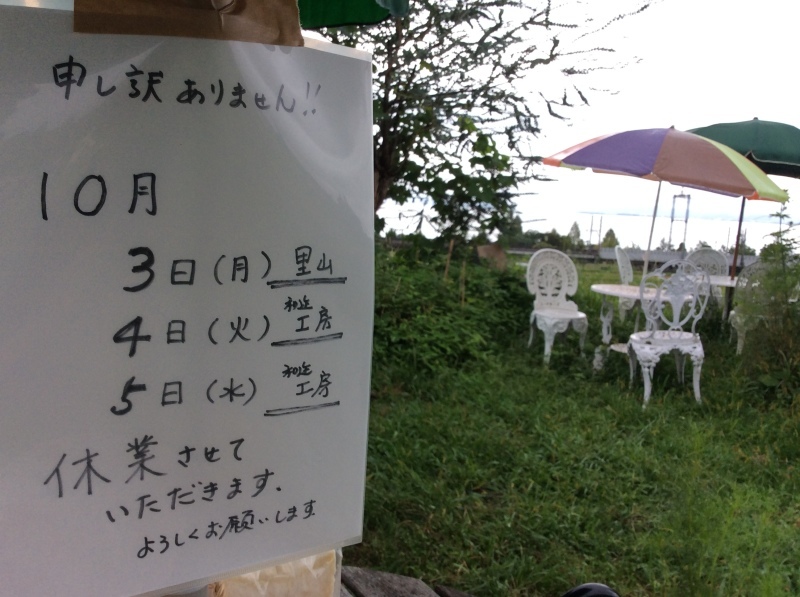 申し訳ありません!!
10月
3日(月)里山
4日(火)和迩工房
5日(水)和迩工房
休業させて
いただきます.
よろしくお願いします